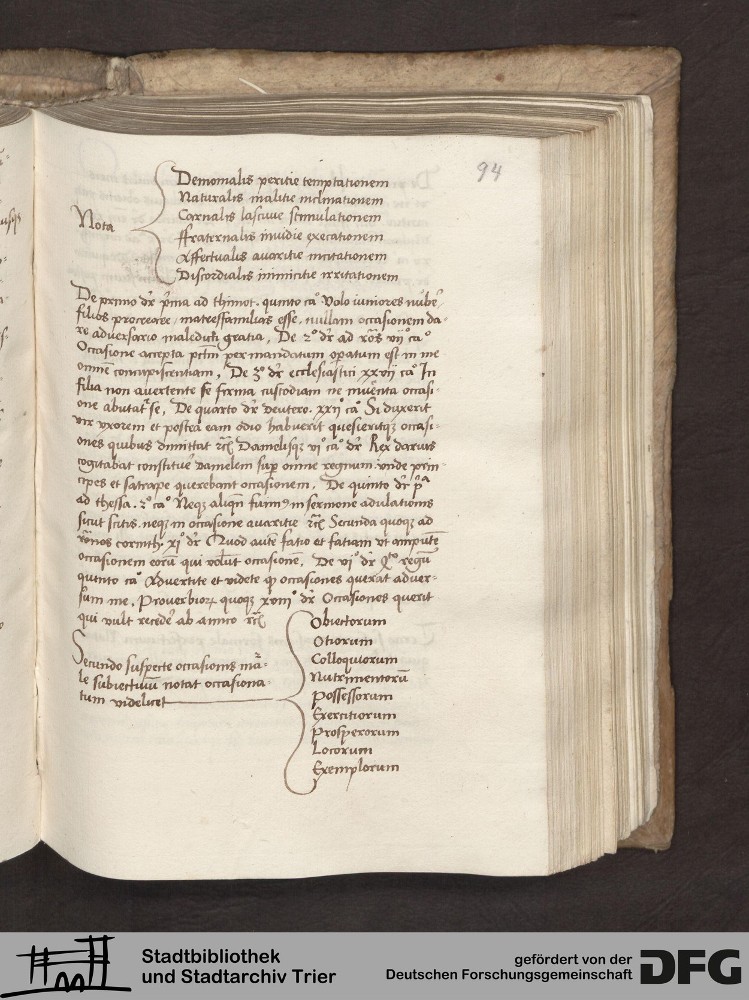 94
Demonialis peritie temptationem
Naturalis malitie inclinationem
Nota
Carnalis lascivie stimulationem
ffraternalis invidie execationem
Affectualis avaritie incitationem
Discordialis inimicitie irritationem
De primo dr pma ad thimot. quinto ca° Volo iuniores nube
filios procreare / matresfamilias esse. nullam occasionem da-
re adversario maledicti gratia. De 2° dr ad ros vij ca°
Occasione accepta pctm per mandatum opatum est in me
omnem concupiscentiam. De 3° dr ecclesiastici xxvij ca° In
filia non avertente se firma custodiam ne inventa occasi-
one abutat se. De quarto dr deutero. xxij ca° Si duxerit
vir uxorem et postea eam odio habuerit quesieritqz occasi-
ones quibus dimittat rc Danielisqz vi° ca° dr Rex darius
cogitabat constitue danielem sup omne regnum. vnde prin-
cipes et satrape querebant occasionem. De quinto dr pa
ad thessa. 2° ca° Neqz aliqn fuim9 in sermone adulationis
sicut scitis. neqz in occasione avaritie rc Secunda quoqz ad
corinth. xj° dr Quod aute facio et faciam vt ampute
occasionem eoru qui volut occasione. De vj° dr regu
quinto ca° Advertite et videte qp occasiones querat adver-
sum me. Proverbior quoqz xviij° dr Occasiones querit
qui vult recede ab amico rc
Secundo suspecte occasionis ma-
le subiectiuu notat occasiona-
tum videlicet
Obiectorum
Otiorum
Colloquiorum
Nutrimentoru
Possessorum
Exercitiorum
Prosperorum
Locorum
Exemplorum
Stadtbibliothek
und Stadtarchiv Trier
gefördert von der
Deutschen Forschungsgemeinschaft
DFG